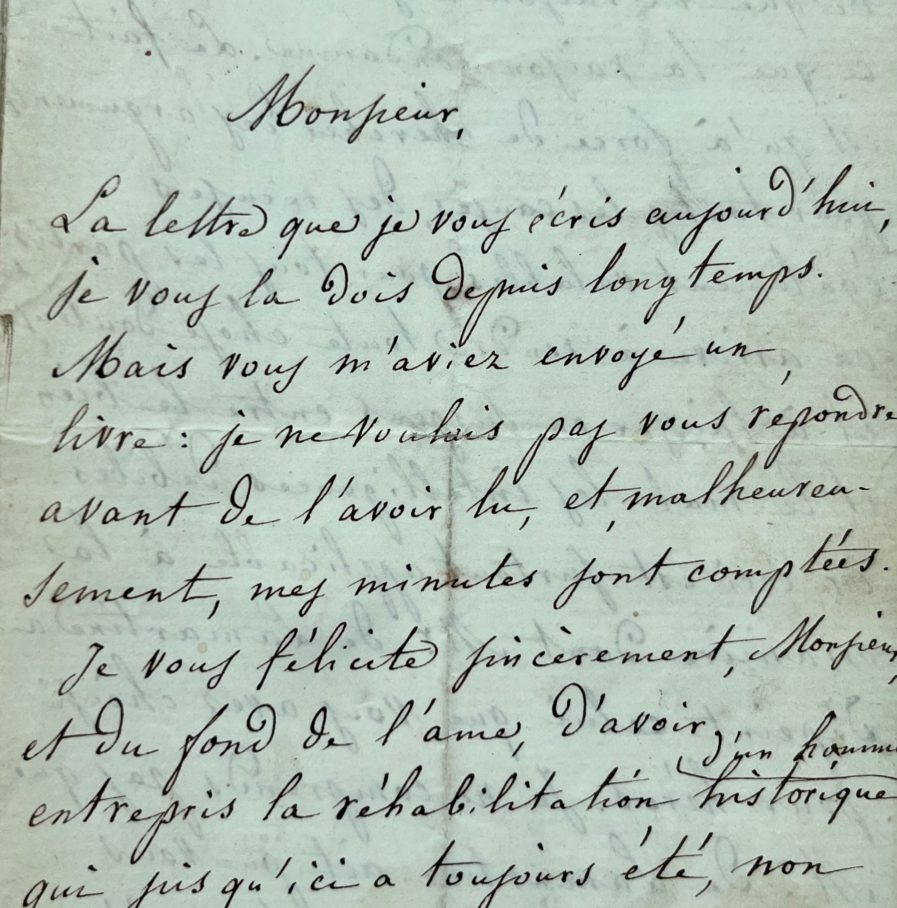 Monsieur,
La lettre que je vous écris aujourd'hui,
je vous la dois depuis longtemps.
Mais vous m'aviez envoyé un
livre : je ne voulais pas vous répondre
avant de l'avoir lu, et, malheureu-
sement, mes minutes sont comptées.
Je vous félicite sincèrement, Monsieur,
et du fond de l'ame, d'avoir
d'un homme
entrepris la réhabilitation historique
qui jusqu'ici a toujours été, non